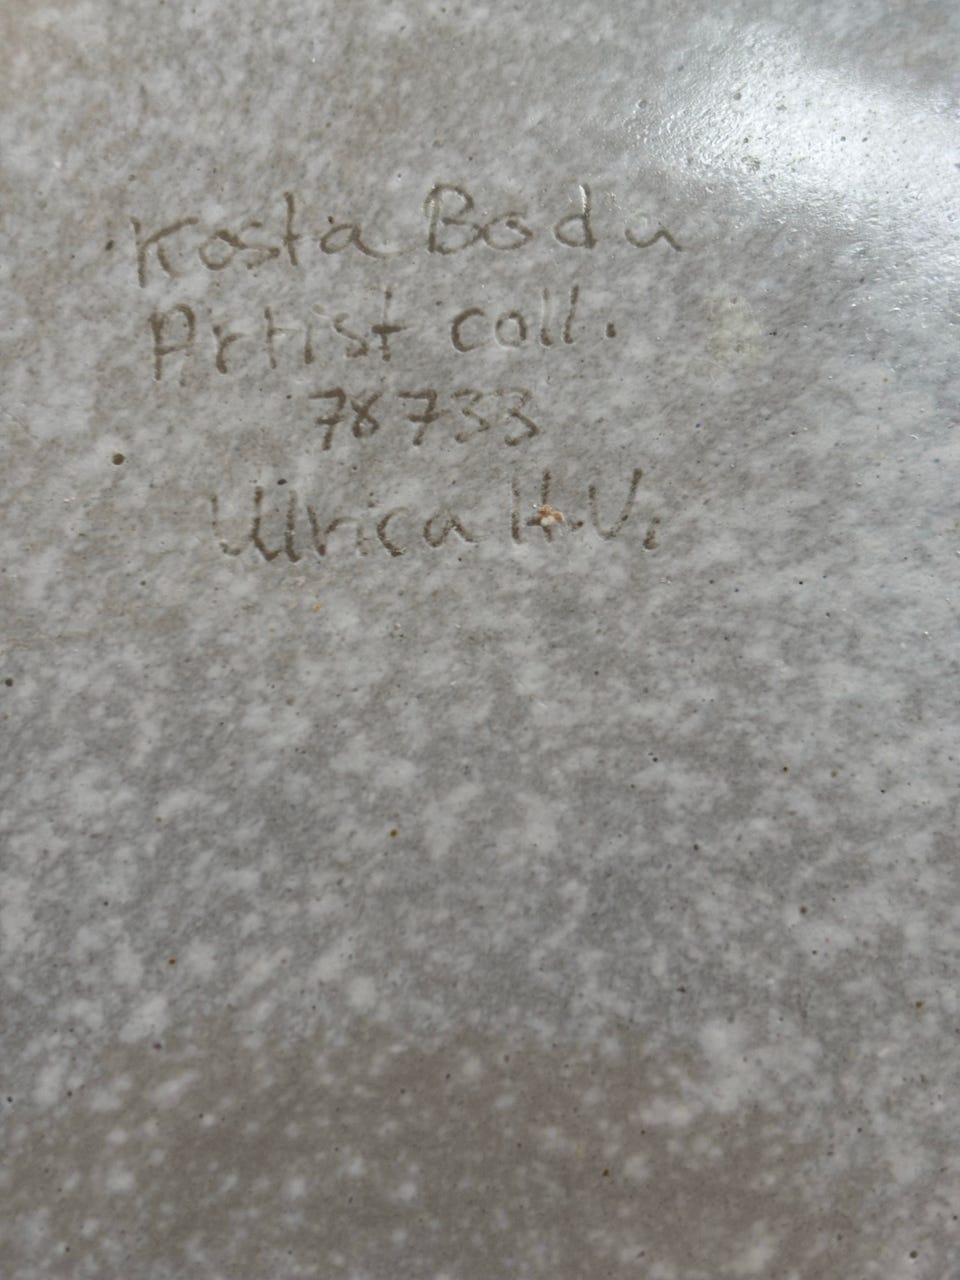 Kosta Boda
Artist coll.
78733
Ulrica H.V.